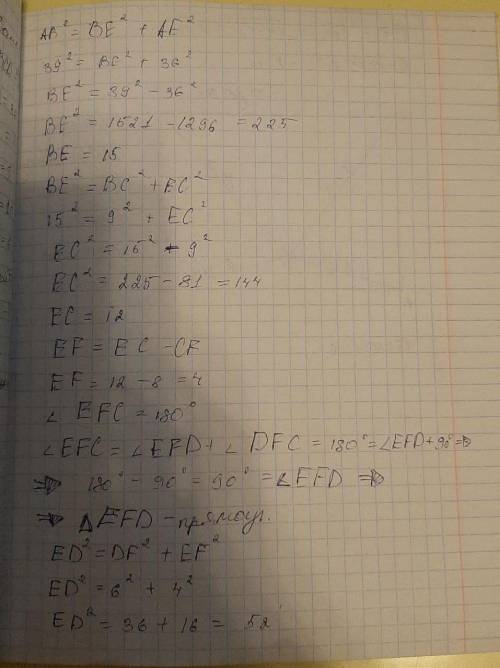 AB² = BE² + AE²
39² = BE² + 36²
BE² = 39² - 36²
BE² = 1521 - 1296 = 225
BE = 15
BE² = BC² + EC²
15² = 9² + EC²
EC² = 15² - 9²
EC² = 225 - 81 = 144
EC = 12
EF = EC - CF
EF = 12 - 8 = 4
∠ EFC = 180°
∠EFC = ∠EFD + ∠ DFC = 180° = ∠EFD + 90° ⇒
⇒ 180° - 90° = 90° = ∠EFD ⇒
⇒ △EFD - прямоуг.
ED² = DF² + EF²
ED² = 6² + 4²
ED² = 36 + 16 = 52